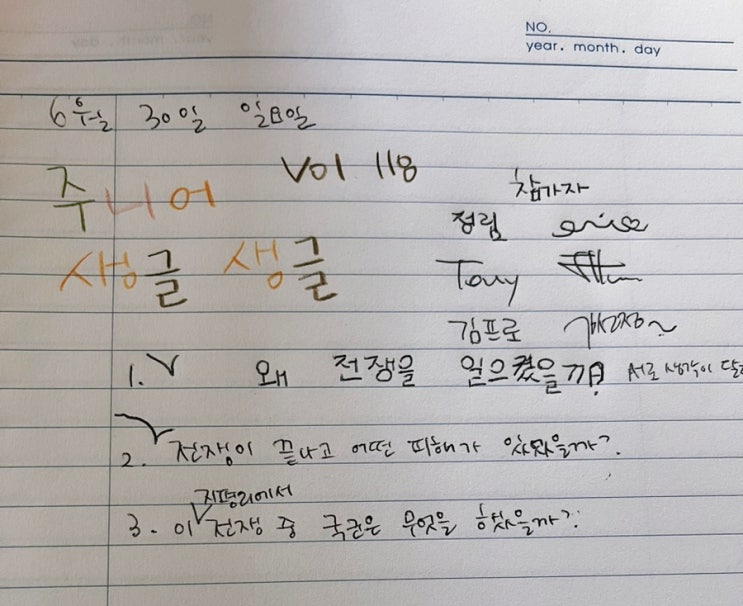 NO.
year. month. day
6월 6 30일 일요일
주니어 Vol 118
생글 생글
참가자
정림
Tony
김프로
1. 왜 전쟁을 일으켰을까? 서로 생각이 달
2. 전쟁이 끝나고 어떤 피해가 있었을까?
지평리에서
3. 이 전쟁 중 국권은 무엇을 했을까?